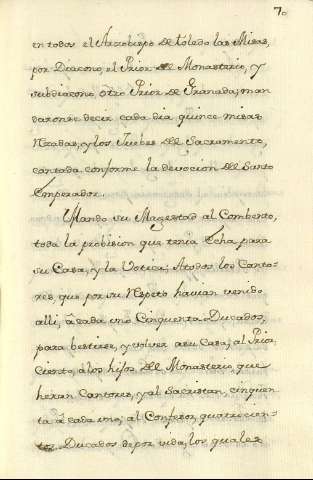 7.
en todos el Arzobispo de toledo las Misas,
por Diacono, el Prior del Monasterio, y
subdiacono, otro Prior de Granada; man
daronse decir cada dia quince misas
Rezadas, y los Juebes del Sacramento,
cantada conforme la devocion del Santo
Emperador.
Mando su Magestad al Combento,
toda la probision que tenia Echa para
su Casa, y la Votica; Atodos los Canto-
res que por su Respeto havian venido
alli, à cada uno Cinquenta Ducados,
para bestirse, y volver a su Casa; al Prior,
Ciento, à los hijos del Monasterio, que
heran Cantores, y al Sacristan, cinquen
ta à cada uno; al Confesor, quatrocien-
tos Ducados de por vida, los quales